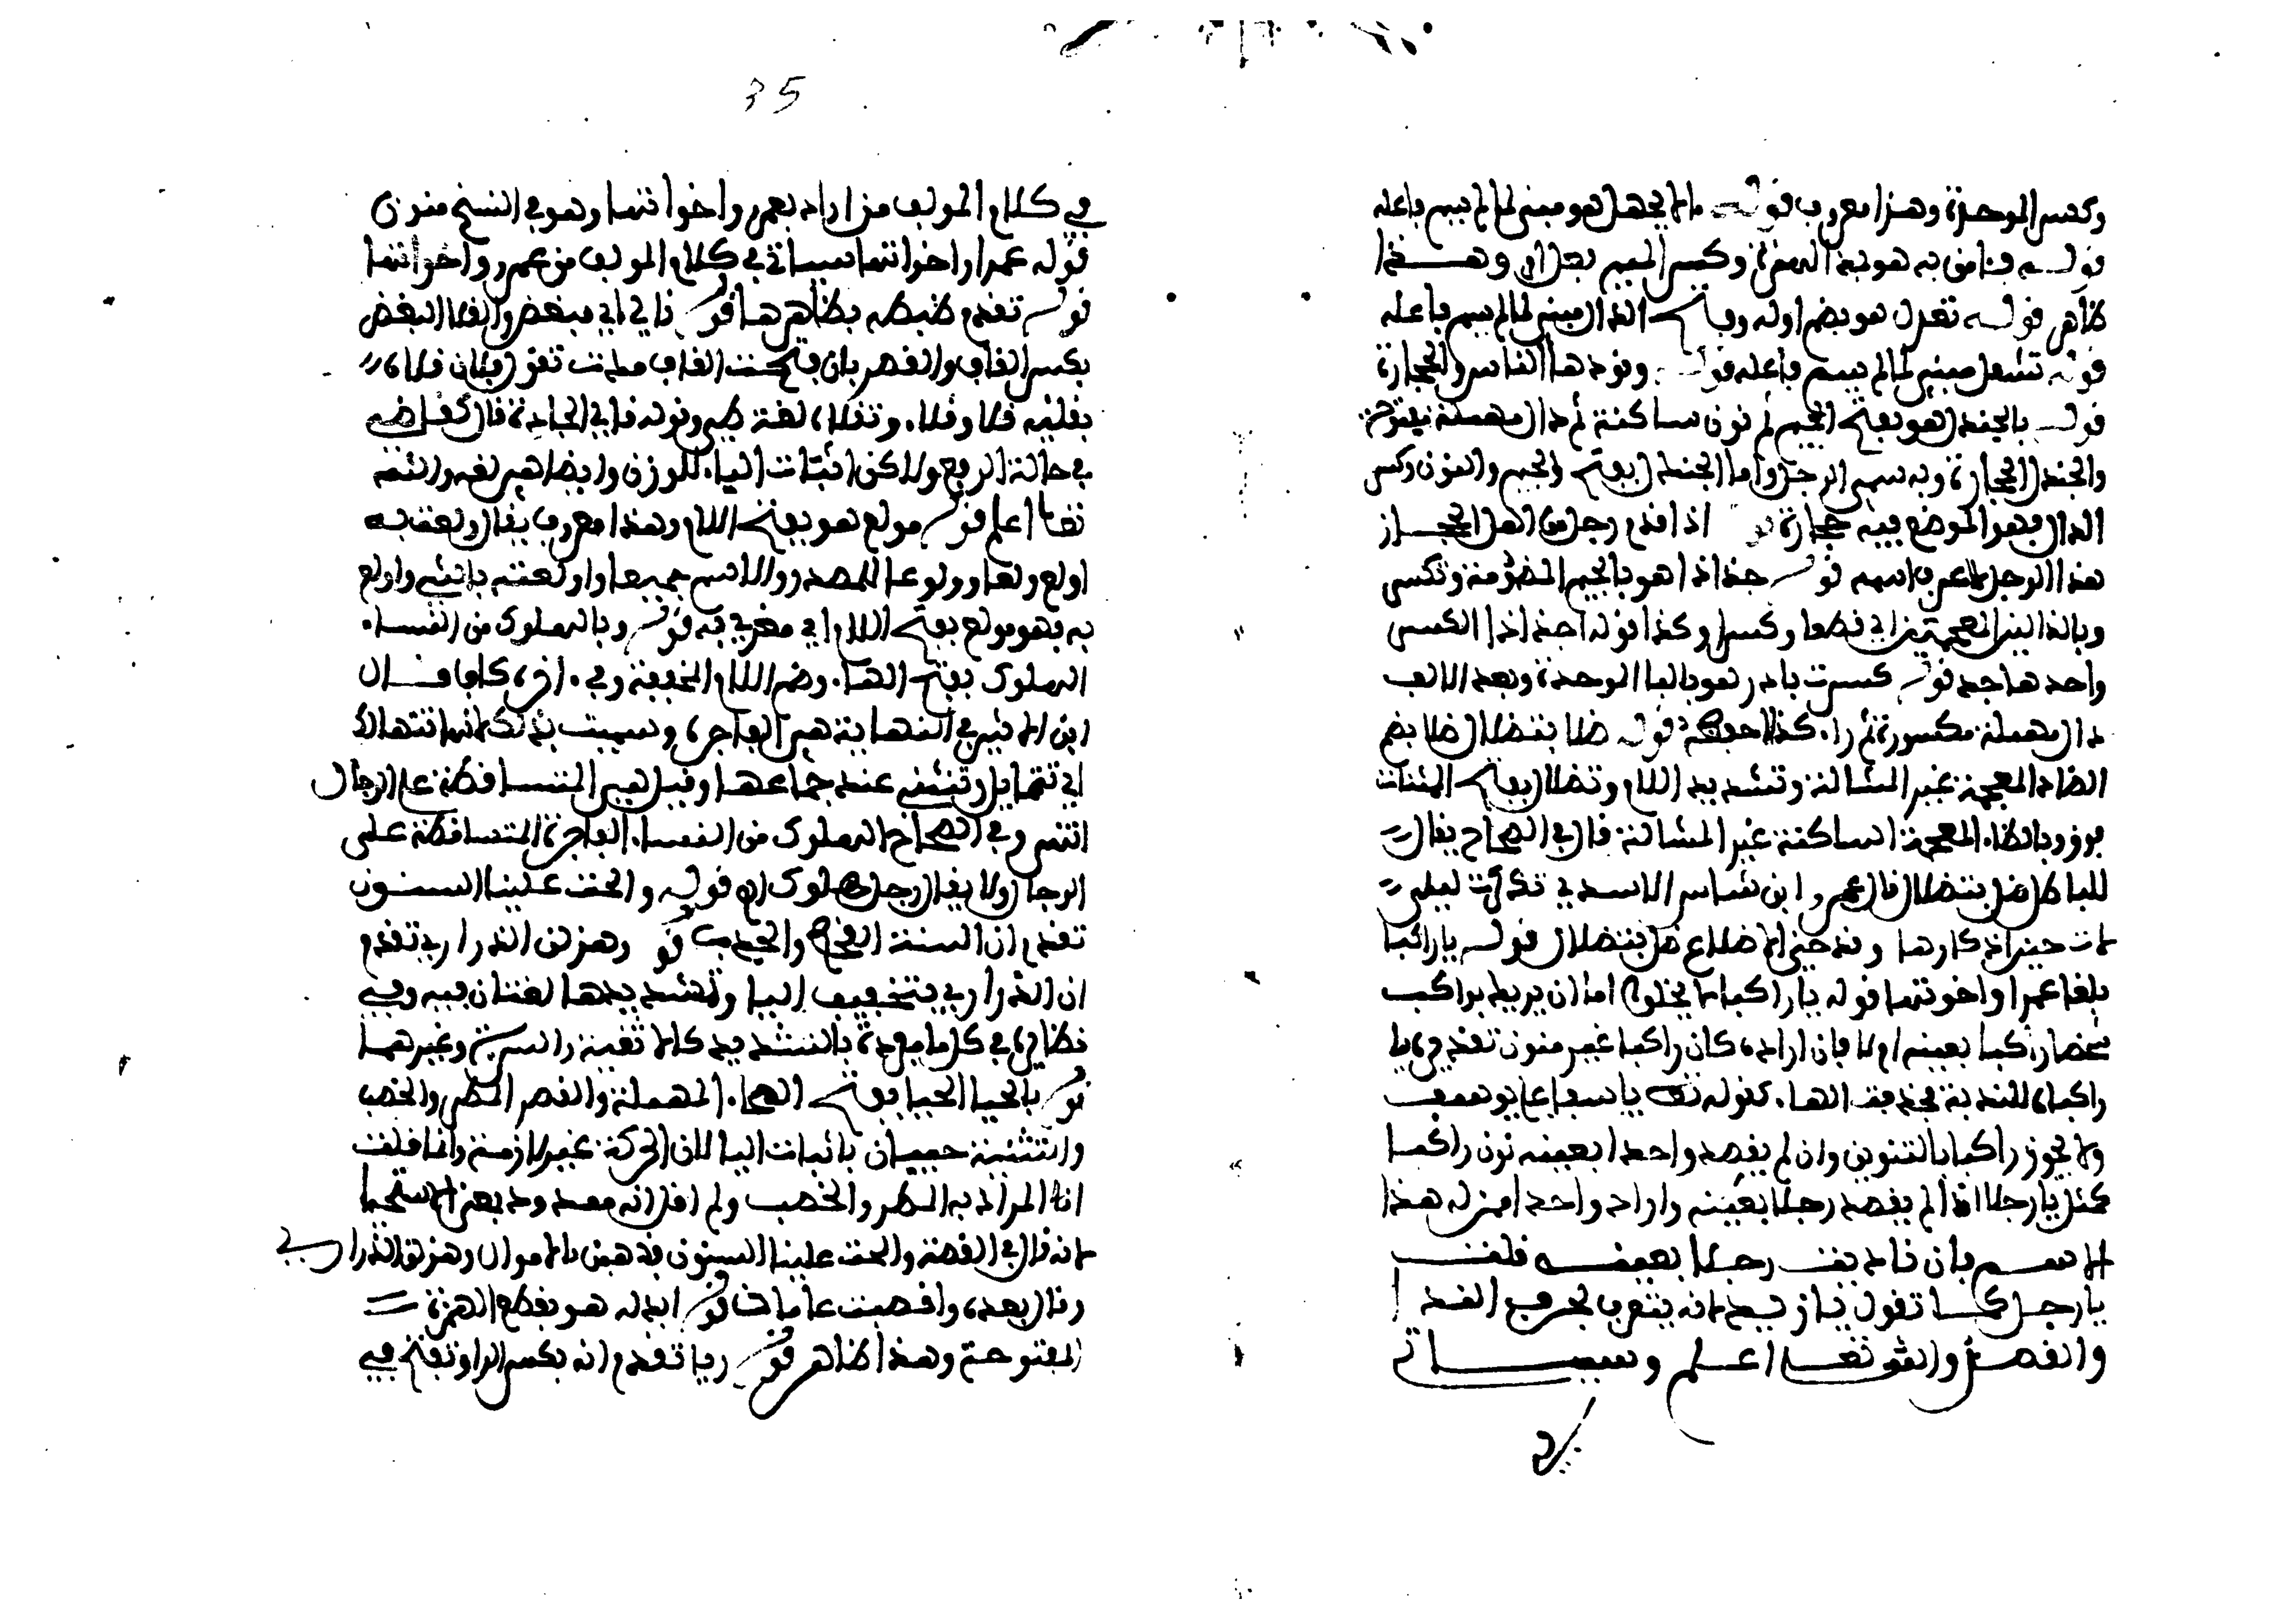 وكسر الموحدة وهذا معروف قوله مالم يجهل هو مبني لما لم يسم فاعله
قوله هو بمد الهمزة وكسر الميم وهذا
ظاهر قوله تعدل هو بضم اوله وفتح الدال مبني لما لم يسم فاعله
قوله تشعل مبني لما لم يسم فاعله قوله وقودها الناس والحجارة
قوله بالجندل هو بفتح الجيم ثم نون ساكنة ثم دال مهملة مفتوحة
والجندل الحجارة وبه سمي الرجل واما الجندل بفتح الجيم والنون وكسر
الدال فهو الموضع فيه حجارة قوله اذا قدم رجل من اهل الحجاز
هذا الرجل لا اعرف اسمه قوله جذاذا هو بالجيم المضمومة وتكسر
وبالذالين المعجمتين اي قطعا وكسرا وكذا قوله اجذاذا الكسر
واحدها جذ قوله كسرت بادر هو بالبا الموحدة وبعد الالف
دال مهملة مكسورة ثم را كذا احفظه قوله ضلا بتضلال ضلا بضم
الضاد المعجمة غير المشالة وتشديد اللام وتضلال بفتح المثنات
فوق وبالضاد المعجمة الساكنة غير المشالة قال في الصحاح يقال
للباطل ضل بتضلال قال عمرو ابن شاس الاسدي تذكرت ليلى
لات حين اذكارها وقد حني الاضلاع ضل بتضلال قوله يا راكبا
بلغا عمرا واخوتها قوله يا راكبا لا يخلو اما ان يريد براكب
شخصا راكبا بعينه اولا فان اراده كان راكبا غير منون تقديره يا
راكباه للندبة فحذفت الها كقوله تعالى يا اسفا على يوسف
ولا يجوز راكبا بالتنوين وان لم يقصد واحدا بعينه نون راكبا
كمثل يا رجلا اذا لم يقصد رجلا بعينه واراد واحدا ممن له هذا
الاسم فان ناديت رجلا بعينه قلت
يا رجل كما تقول يا زيد لانه يتعرف بحرف الندا
والقصد والله تعالى اعلم وسيأتي
في
35
في كلام المولف من اراد بعمرو واخواتها وهو في النسخ منون
قوله عمرا واخواتها سياتي في كلام المولف من عمرو واخواتها
قوله تقدم ضبطه بظاهرها قوله قالي اي مبغض والقلا البغض
بكسر القاف والقصر بان فتحت القاف مددت تقول قلان قلاء
يقليه قلا وقلاء وتقلاء لغة طي وقوله قالي الجادة قال كقاضي
في حالة الرفع ولاكن اثبات الياء للوزن وايضا هي لغة والله
تعالى اعلم قوله مولع هو بفتح اللام وهذا معروف يقال ولعت به
اولع ولعا وولوعا المصدر والاسم جميعا واولعته بالشي واولع
به فهو مولع بفتح اللام اي مغرى به قوله وبالهلوك من النساء
الهلوك بفتح الهاء وضم اللام المخففة وفي اخره كاف قال
ابن الاثير في النهاية هي الفاجرة وسميت بذلك لانها تتهالك
اي تتمايل وتنثني عند جماعها وقيل هي المتساقطة على الرجال
انتهى وفي الصحاح الهلوك من النساء الفاجرة المتساقطة على
الرجال ولا يقال رجل هلوك اه قوله والحت علينا السنون
تقدم ان السنة القحط والجدب قوله وهزلن الذراري تقدم
ان الذراري بتخفيف اليا وتشديدها لغتان فيه وفي
نظائره في كل ما مفرده بالتشديد كالاثفية والسرية وغيرهما
قوله بالحيا الحيا بفتح الحاء المهملة والقصر المطر والخصب
والتثنية حييان باثبات اليا لان الحركة غير لازمة وانما قلت
ان المراد به المطر والخصب ولم اقل انه ممدود بمعنى الاستحيا
لانه قال في القصة والحت علينا السنون فذهبن بالاموال وهزلن الذراري
وقال بعده واخصبت عامات قوله ابدله هو بقطع الهمزة
المفتوحة وهذا ظاهر قوله ربا تقدم انه بكسر الرا وتفتح في